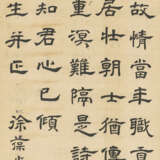 故情當年職貢
居壯朝士猶傳
重溟難隔是詩
知君心已傾
生并正
徐葆光